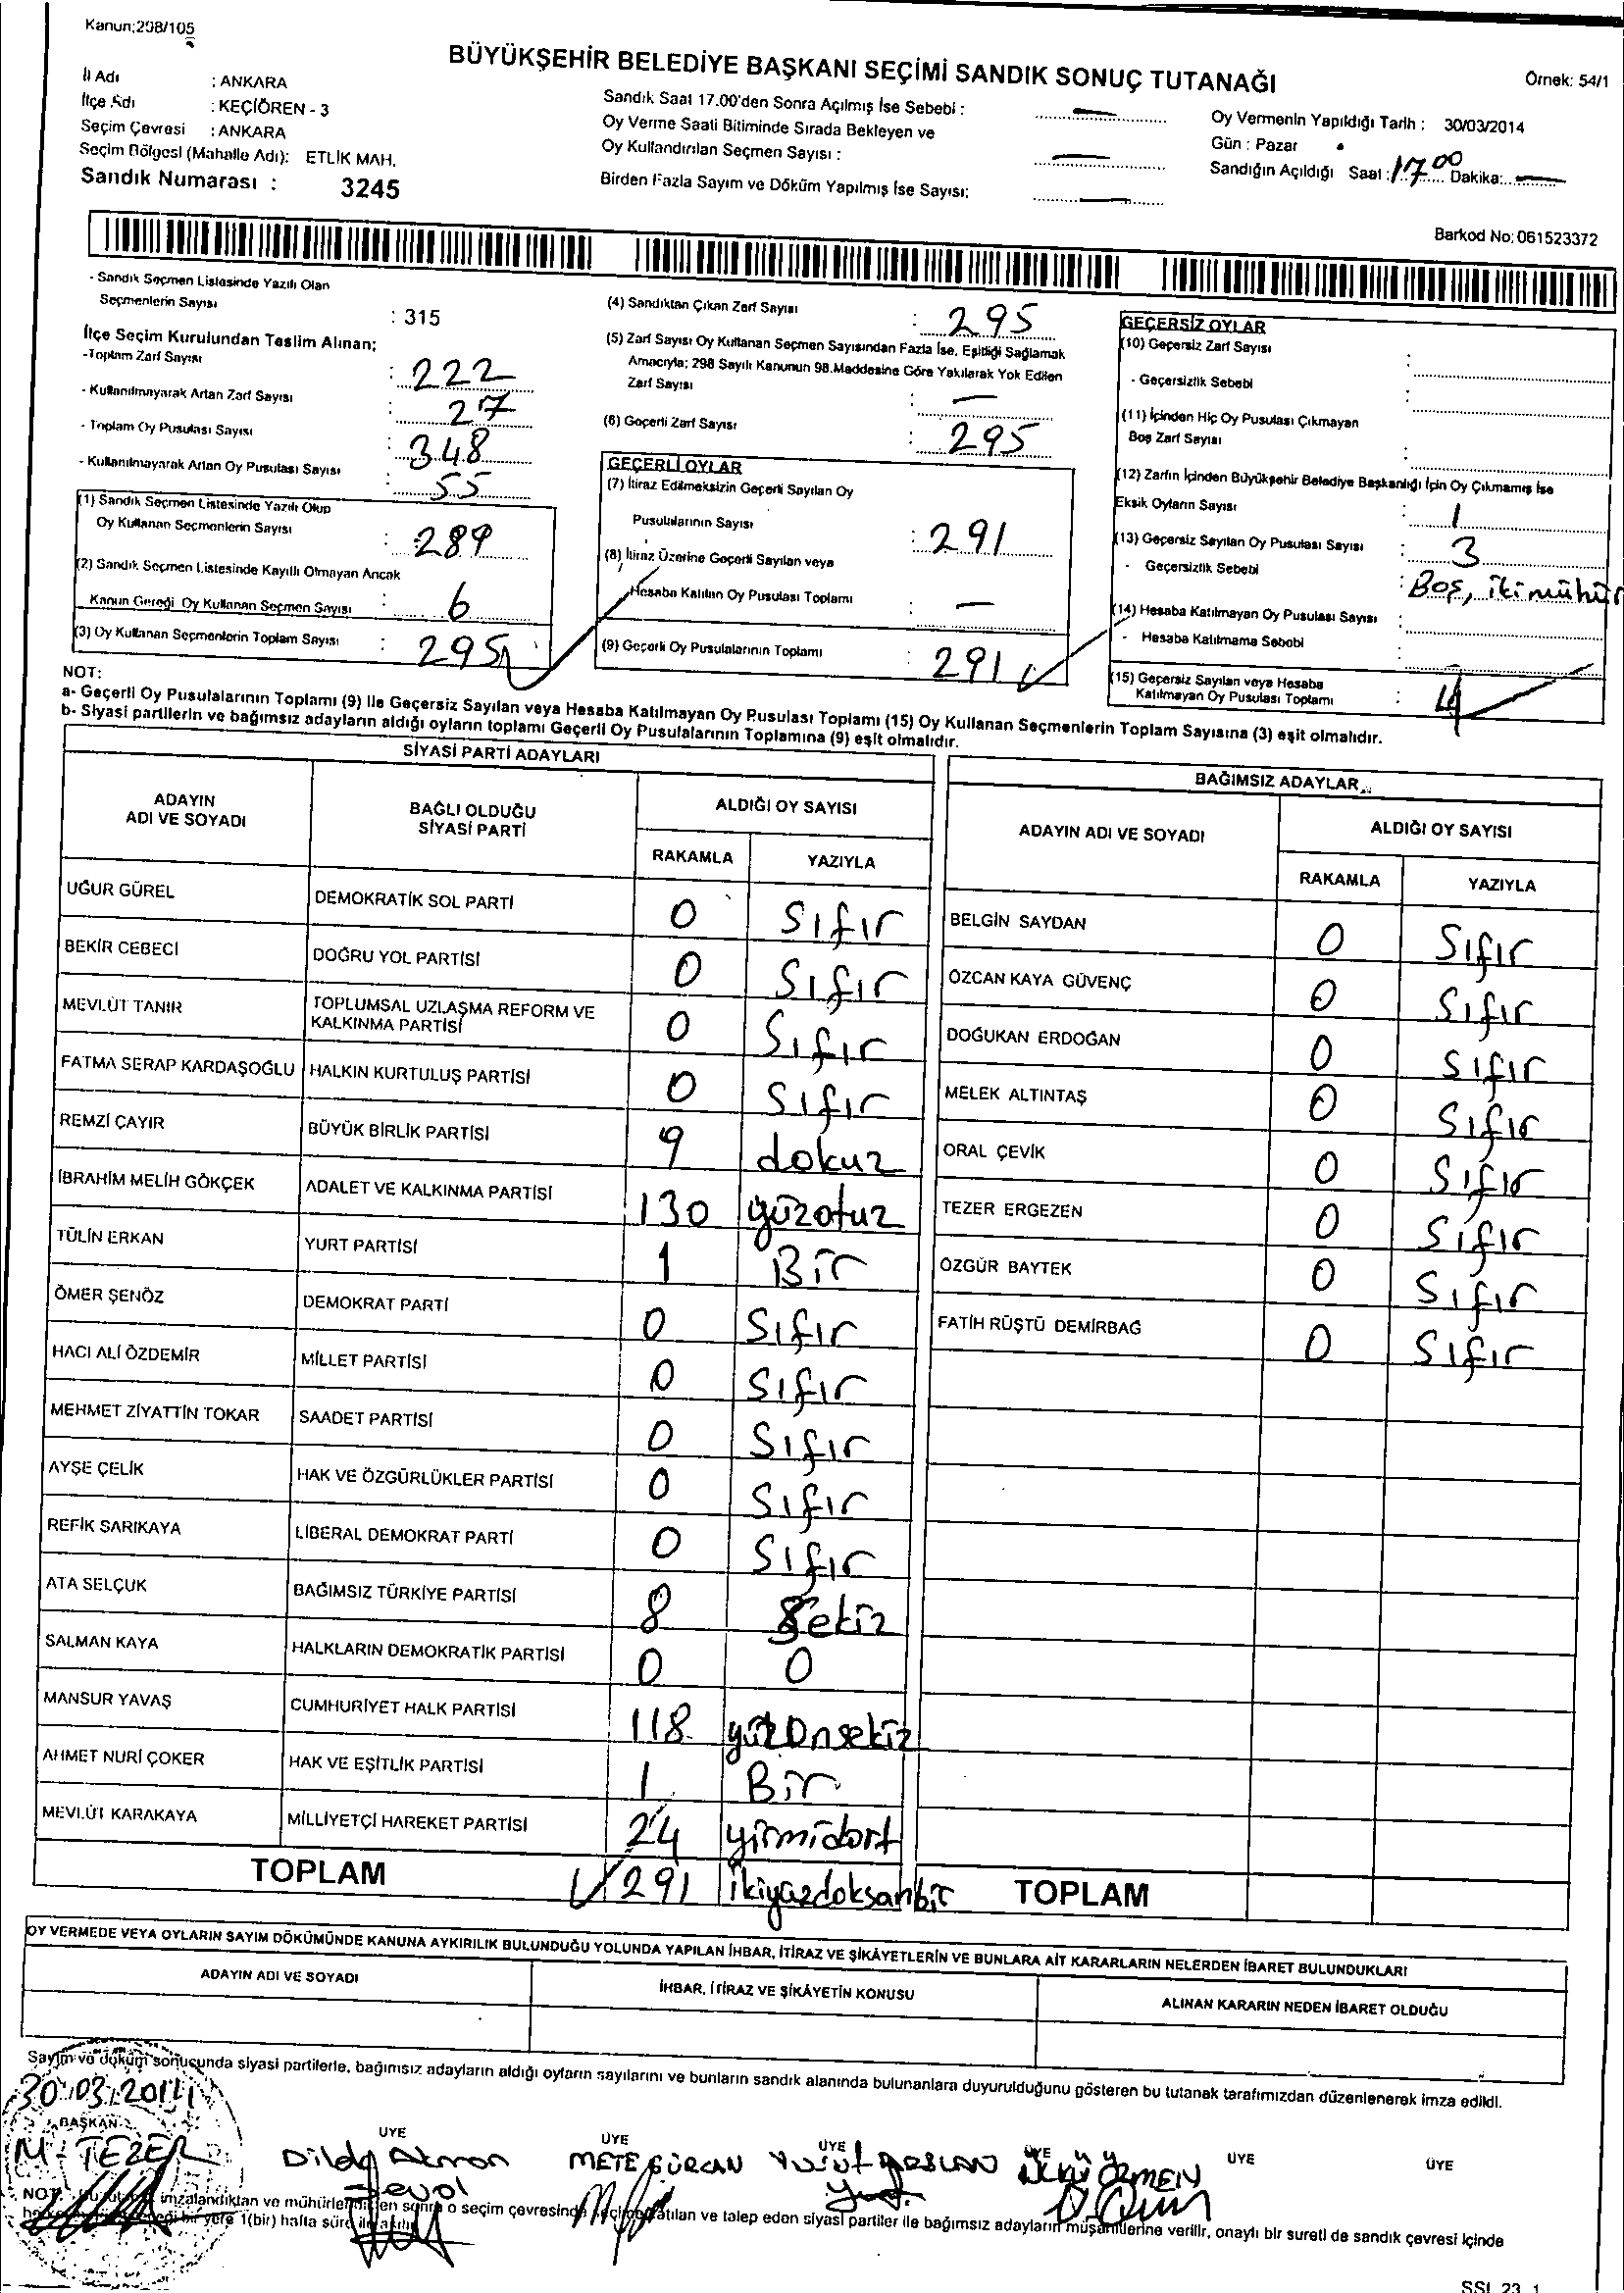 Kanun;298/105
BÜYÜKŞEHİR BELEDİYE BAŞKANI SEÇİMİ SANDIK SONUÇ TUTANAĞI
Örnek: 54/1
İl Adı : ANKARA
İlçe Adı : KEÇİÖREN - 3
Seçim Çevresi : ANKARA
Seçim Bölgesi (Mahalle Adı): ETLİK MAH.
Sandık Numarası : 3245
Sandık Saat 17.00'den Sonra Açılmış İse Sebebi : —
Oy Verme Saati Bitiminde Sırada Bekleyen ve
Oy Kullandırılan Seçmen Sayısı : —
Birden Fazla Sayım ve Döküm Yapılmış İse Sayısı: —
Oy Vermenin Yapıldığı Tarih : 30/03/2014
Gün : Pazar
Sandığın Açıldığı Saat : 17.00 Dakika: —
Barkod No: 061523372
- Sandık Seçmen Listesinde Yazılı Olan
Seçmenlerin Sayısı : 315
İlçe Seçim Kurulundan Teslim Alınan;
-Toplam Zarf Sayısı : 222
- Kullanılmayarak Artan Zarf Sayısı : 27
- Toplam Oy Pusulası Sayısı : 348
- Kullanılmayarak Artan Oy Pusulası Sayısı : 55
(1) Sandık Seçmen Listesinde Yazılı Olup
Oy Kullanan Seçmenlerin Sayısı : 289
(2) Sandık Seçmen Listesinde Kayıtlı Olmayan Ancak
Kanun Gereği Oy Kullanan Seçmen Sayısı : 6
(3) Oy Kullanan Seçmenlerin Toplam Sayısı : 295
(4) Sandıktan Çıkan Zarf Sayısı : 295
(5) Zarf Sayısı Oy Kullanan Seçmen Sayısından Fazla İse, Eşitliği Sağlamak
Amacıyla; 298 Sayılı Kanunun 98.Maddesine Göre Yakılarak Yok Edilen
Zarf Sayısı : —
(6) Geçerli Zarf Sayısı : 295
GEÇERLİ OYLAR
(7) İtiraz Edilmeksizin Geçerli Sayılan Oy
Pusulalarının Sayısı : 291
(8) İtiraz Üzerine Geçerli Sayılan veya
Hesaba Katılan Oy Pusulası Toplamı : —
(9) Geçerli Oy Pusulalarının Toplamı : 291
GEÇERSİZ OYLAR
(10) Geçersiz Zarf Sayısı :
- Geçersizlik Sebebi :
(11) İçinden Hiç Oy Pusulası Çıkmayan
Boş Zarf Sayısı :
(12) Zarfın İçinden Büyükşehir Belediye Başkanlığı İçin Oy Çıkmamış İse
Eksik Oyların Sayısı : 1
(13) Geçersiz Sayılan Oy Pusulası Sayısı : 3
- Geçersizlik Sebebi : Boş, iki mühür
(14) Hesaba Katılmayan Oy Pusulası Sayısı :
- Hesaba Katılmama Sebebi :
(15) Geçersiz Sayılan veya Hesaba
Katılmayan Oy Pusulası Toplamı : 4
NOT:
a- Geçerli Oy Pusulalarının Toplamı (9) İle Geçersiz Sayılan veya Hesaba Katılmayan Oy Pusulası Toplamı (15) Oy Kullanan Seçmenlerin Toplam Sayısına (3) eşit olmalıdır.
b- Siyasi partilerin ve bağımsız adayların aldığı oyların toplamı Geçerli Oy Pusulalarının Toplamına (9) eşit olmalıdır.
SİYASİ PARTİ ADAYLARI
ADAYIN ADI VE SOYADI
BAĞLI OLDUĞU SİYASİ PARTİ
ALDIĞI OY SAYISI
RAKAMLA YAZIYLA
UĞUR GÜREL DEMOKRATİK SOL PARTİ 0 Sıfır
BEKİR CEBECİ DOĞRU YOL PARTİSİ 0 Sıfır
MEVLÜT TANIR TOPLUMSAL UZLAŞMA REFORM VE KALKINMA PARTİSİ 0 Sıfır
FATMA SERAP KARDAŞOĞLU HALKIN KURTULUŞ PARTİSİ 0 Sıfır
REMZİ ÇAYIR BÜYÜK BİRLİK PARTİSİ 9 dokuz
İBRAHİM MELİH GÖKÇEK ADALET VE KALKINMA PARTİSİ 130 yüzotuz
TÜLİN ERKAN YURT PARTİSİ 1 Bir
ÖMER ŞENÖZ DEMOKRAT PARTİ 0 Sıfır
HACI ALİ ÖZDEMİR MİLLET PARTİSİ 0 Sıfır
MEHMET ZİYATTİN TOKAR SAADET PARTİSİ 0 Sıfır
AYŞE ÇELİK HAK VE ÖZGÜRLÜKLER PARTİSİ 0 Sıfır
REFİK SARIKAYA LİBERAL DEMOKRAT PARTİ 0 Sıfır
ATA SELÇUK BAĞIMSIZ TÜRKİYE PARTİSİ 8 Sekiz
SALMAN KAYA HALKLARIN DEMOKRATİK PARTİSİ 0 0
MANSUR YAVAŞ CUMHURİYET HALK PARTİSİ 118 yüzonsekiz
AHMET NURİ ÇOKER HAK VE EŞİTLİK PARTİSİ 1 Bir
MEVLÜT KARAKAYA MİLLİYETÇİ HAREKET PARTİSİ 24 yirmidört
TOPLAM 291 ikiyüzdoksanbir
BAĞIMSIZ ADAYLAR
ADAYIN ADI VE SOYADI
ALDIĞI OY SAYISI
RAKAMLA YAZIYLA
BELGİN SAYDAN 0 Sıfır
ÖZCAN KAYA GÜVENÇ 0 Sıfır
DOĞUKAN ERDOĞAN 0 Sıfır
MELEK ALTINTAŞ 0 Sıfır
ORAL ÇEVİK 0 Sıfır
TEZER ERGEZEN 0 Sıfır
ÖZGÜR BAYTEK 0 Sıfır
FATİH RÜŞTÜ DEMİRBAĞ 0 Sıfır
TOPLAM
OY VERMEDE VEYA OYLARIN SAYIM DÖKÜMÜNDE KANUNA AYKIRILIK BULUNDUĞU YOLUNDA YAPILAN İHBAR, İTİRAZ VE ŞİKÂYETLERİN VE BUNLARA AİT KARARLARIN NELERDEN İBARET BULUNDUKLARI
ADAYIN ADI VE SOYADI
İHBAR, İTİRAZ VE ŞİKÂYETİN KONUSU
ALINAN KARARIN NEDEN İBARET OLDUĞU
Sayım ve döküm sonucunda siyasi partilerle, bağımsız adayların aldığı oyların sayılarını ve bunların sandık alanında bulunanlara duyurulduğunu gösteren bu tutanak tarafımızdan düzenlenerek imza edildi.
30.03.2014
BAŞKAN ÜYE ÜYE ÜYE ÜYE ÜYE ÜYE
M. TEZER
METE GÜRCAN
ÜLKÜ ÖRMEN
NOT: imzalandıktan ve mühürlendikten sonra o seçim çevresinde seçime katılan ve talep eden siyasi partiler ile bağımsız adayların müşahitlerine verilir, onaylı bir sureti de sandık çevresi içinde
1(bir) hafta süre ile asılır.
SSI 23 1